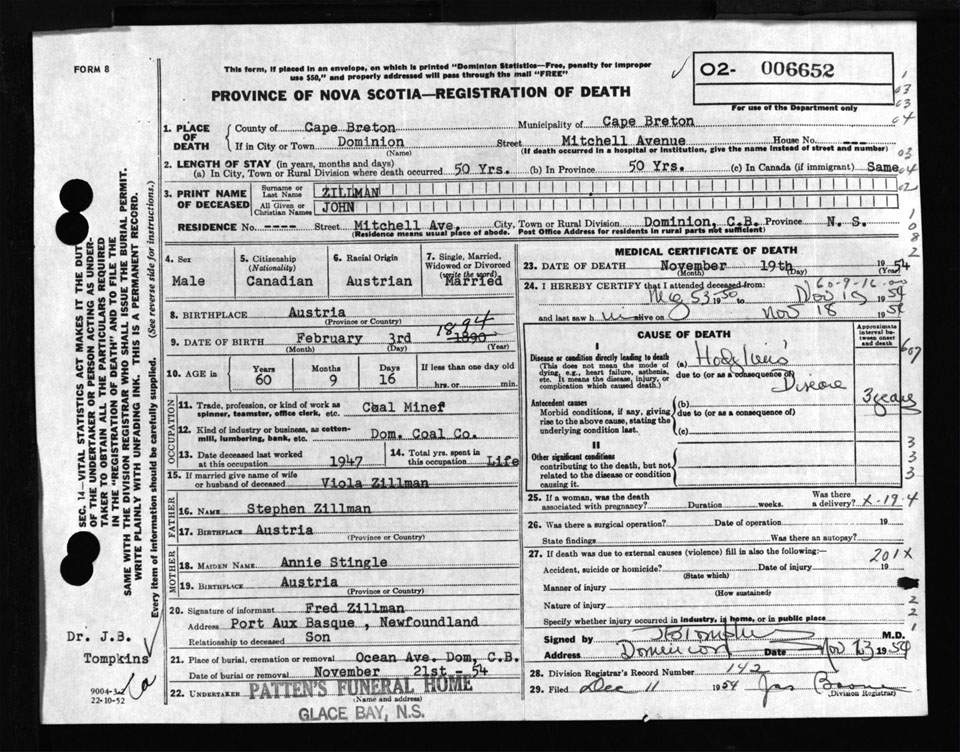 FORM 8
This form, if placed in an envelope, on which is printed "Dominion Statistics—Free, penalty for improper
use $50," and properly addressed will pass through the mail "FREE"
PROVINCE OF NOVA SCOTIA—REGISTRATION OF DEATH
02- 006652
For use of the Department only
1. PLACE OF DEATH { County of Cape Breton Municipality of Cape Breton
If in City or Town Dominion Street Mitchell Avenue House No. ---
(Name) (If death occurred in a hospital or institution, give the name instead of street and number)
2. LENGTH OF STAY (in years, months and days)
(a) In City, Town or Rural Division where death occurred 50 Yrs. (b) In Province 50 Yrs. (c) In Canada (if immigrant) Same
3. PRINT NAME OF DECEASED { Surname or Last Name ZILLMAN
All Given or Christian Names JOHN
RESIDENCE No. ---- Street Mitchell Ave, City, Town or Rural Division Dominion, C.B. Province N. S.
(Residence means usual place of abode. Post Office Address for residents in rural parts not sufficient)
4. Sex Male
5. Citizenship (Nationality) Canadian
6. Racial Origin Austrian
7. Single, Married, Widowed or Divorced (write the word) Married
8. BIRTHPLACE Austria
(Province or Country)
9. DATE OF BIRTH February 3rd 1890 1894
(Month) (Day) (Year)
10. AGE in Years 60 Months 9 Days 16 If less than one day old hrs. or min.
OCCUPATION
11. Trade, profession, or kind of work as spinner, teamster, office clerk, etc. Coal Miner
12. Kind of industry or business, as cotton-mill, lumbering, bank, etc. Dom. Coal Co.
13. Date deceased last worked at this occupation 1947 14. Total yrs. spent in this occupation Life
15. If married give name of wife or husband of deceased Viola Zillman
FATHER
16. NAME Stephen Zillman
17. BIRTHPLACE Austria
(Province or Country)
MOTHER
18. MAIDEN NAME Annie Stingle
19. BIRTHPLACE Austria
(Province or Country)
20. Signature of informant Fred Zillman
Address Port Aux Basque , Newfoundland
Relationship to deceased Son
21. Place of burial, cremation or removal Ocean Ave. Dom, C.B.
Date of burial or removal November 21st - 54
22. UNDERTAKER PATTEN'S FUNERAL HOME
(Name and address)
GLACE BAY, N.S.
MEDICAL CERTIFICATE OF DEATH
23. DATE OF DEATH November 19th 1954
(Month) (Day) (Year)
24. I HEREBY CERTIFY that I attended deceased from:
60-9-16
1950 to Nov 19 1954
and last saw h im alive on Nov 18 1954
CAUSE OF DEATH
Approximate interval between onset and death
I
Disease or condition directly leading to death (a) Hodgkin's
(This does not mean the mode of dying, e.g., heart failure, asthenia, etc. It means the disease, injury, or complication which caused death.)
due to (or as a consequence of) Disease
3 years
Antecedent causes
Morbid conditions, if any, giving rise to the above cause, stating the underlying condition last.
(b)
due to (or as a consequence of)
(c)
II
Other significant conditions
contributing to the death, but not related to the disease or condition causing it.
25. If a woman, was the death associated with pregnancy? Duration weeks. Was there a delivery? X-19-4
26. Was there a surgical operation? Date of operation 19
State findings Was there an autopsy?
27. If death was due to external causes (violence) fill in also the following:—
201X
Accident, suicide or homicide? Date of injury 19
(State which)
Manner of injury
(How sustained)
Nature of injury
Specify whether injury occurred in industry, in home, or in public place
Signed by M.D.
Address Dominion Date Nov 23 1954
28. Division Registrar's Record Number 142
29. Filed Dec 11 1954 Jas Boone
(Division Registrar)
SEC. 14—VITAL STATISTICS ACT MAKES IT THE DUTY
OF THE UNDERTAKER OR PERSON ACTING AS UNDER-
TAKER TO OBTAIN ALL THE PARTICULARS REQUIRED
IN THE "REGISTRATION OF DEATH" AND TO FILE THE
SAME WITH THE DIVISION REGISTRAR WHO SHALL ISSUE THE BURIAL PERMIT.
WRITE PLAINLY WITH UNFADING INK. THIS IS A PERMANENT RECORD.
Every item of information should be carefully supplied. (See reverse side for instructions.)
Dr. J.B.
Tompkins
22-10-52